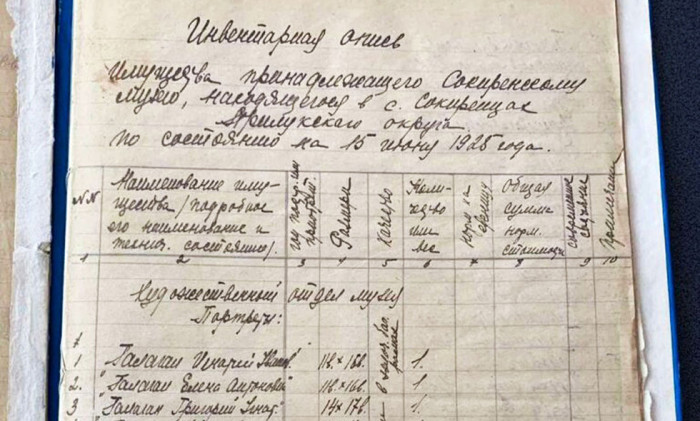 Инвентарная опись
Имущества принадлежащего Сокиренскому
музею, находящегося в с. Сокиренцах
Прилукского округа
по состоянию на 15 июня 1925 года.
№№
Наименование иму-
щества/подробное
его наименование и
технич. состояние/.
Размеры
Коли-
чество
Общая
сумма
норм.
стоимости
Примечание
1 2 3 4 5 6 7 8 9 10
Художественный отдел музея
Портреты:
1 Галаган 11в. × 16в. 1.
2. "Галаган Елена Антоновн" 11в. × 16в. 1.
3 "Галаган Григорий Игнат." 14 × 17в. 1.